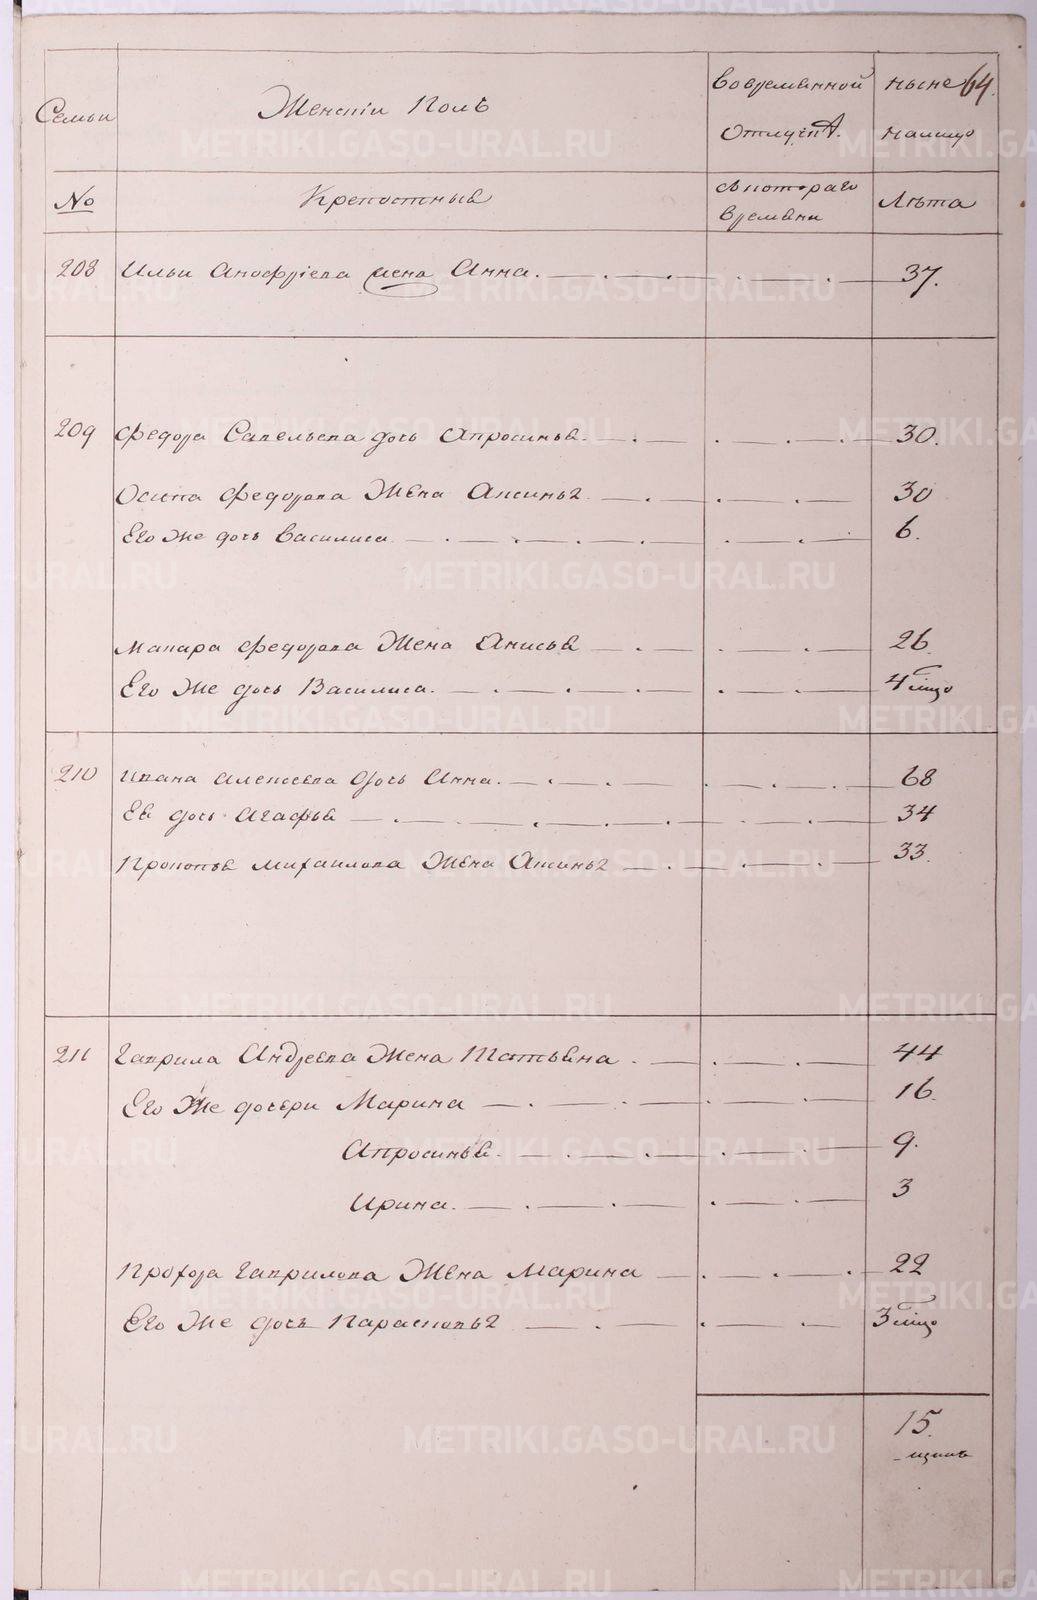 Семьи
Женскiй Полъ
Вовременной
отлучкѣ
ныне
налицо
64.
№
Крепостные
съ котораго
времени
Лѣта
208 Ильи Анофрiева жена Анна. 37.
209 Федора Савельева дочь Апросинья. 30.
Осипа Федорова Жена Аксинья 30
Его же дочь Василиса 6.
Макара Федорова Жена Анисья 26.
Его Же дочь Василиса. 4 мцо
210 Ивана Алексеева дочь Анна. 68
Ея дочь Агафья 34
Прокопья Михаилова Жена Аксинья 33.
211 Гаврила Андреева Жена Татьяна 44
Его Же дочери Марина 16.
Апросинья 9.
Ирина. 3
Прохора Гаврилова Жена Марина 22
Его Же дочь Парасковья 3 мцо
15.
METRIKI.GASO-URAL.RU